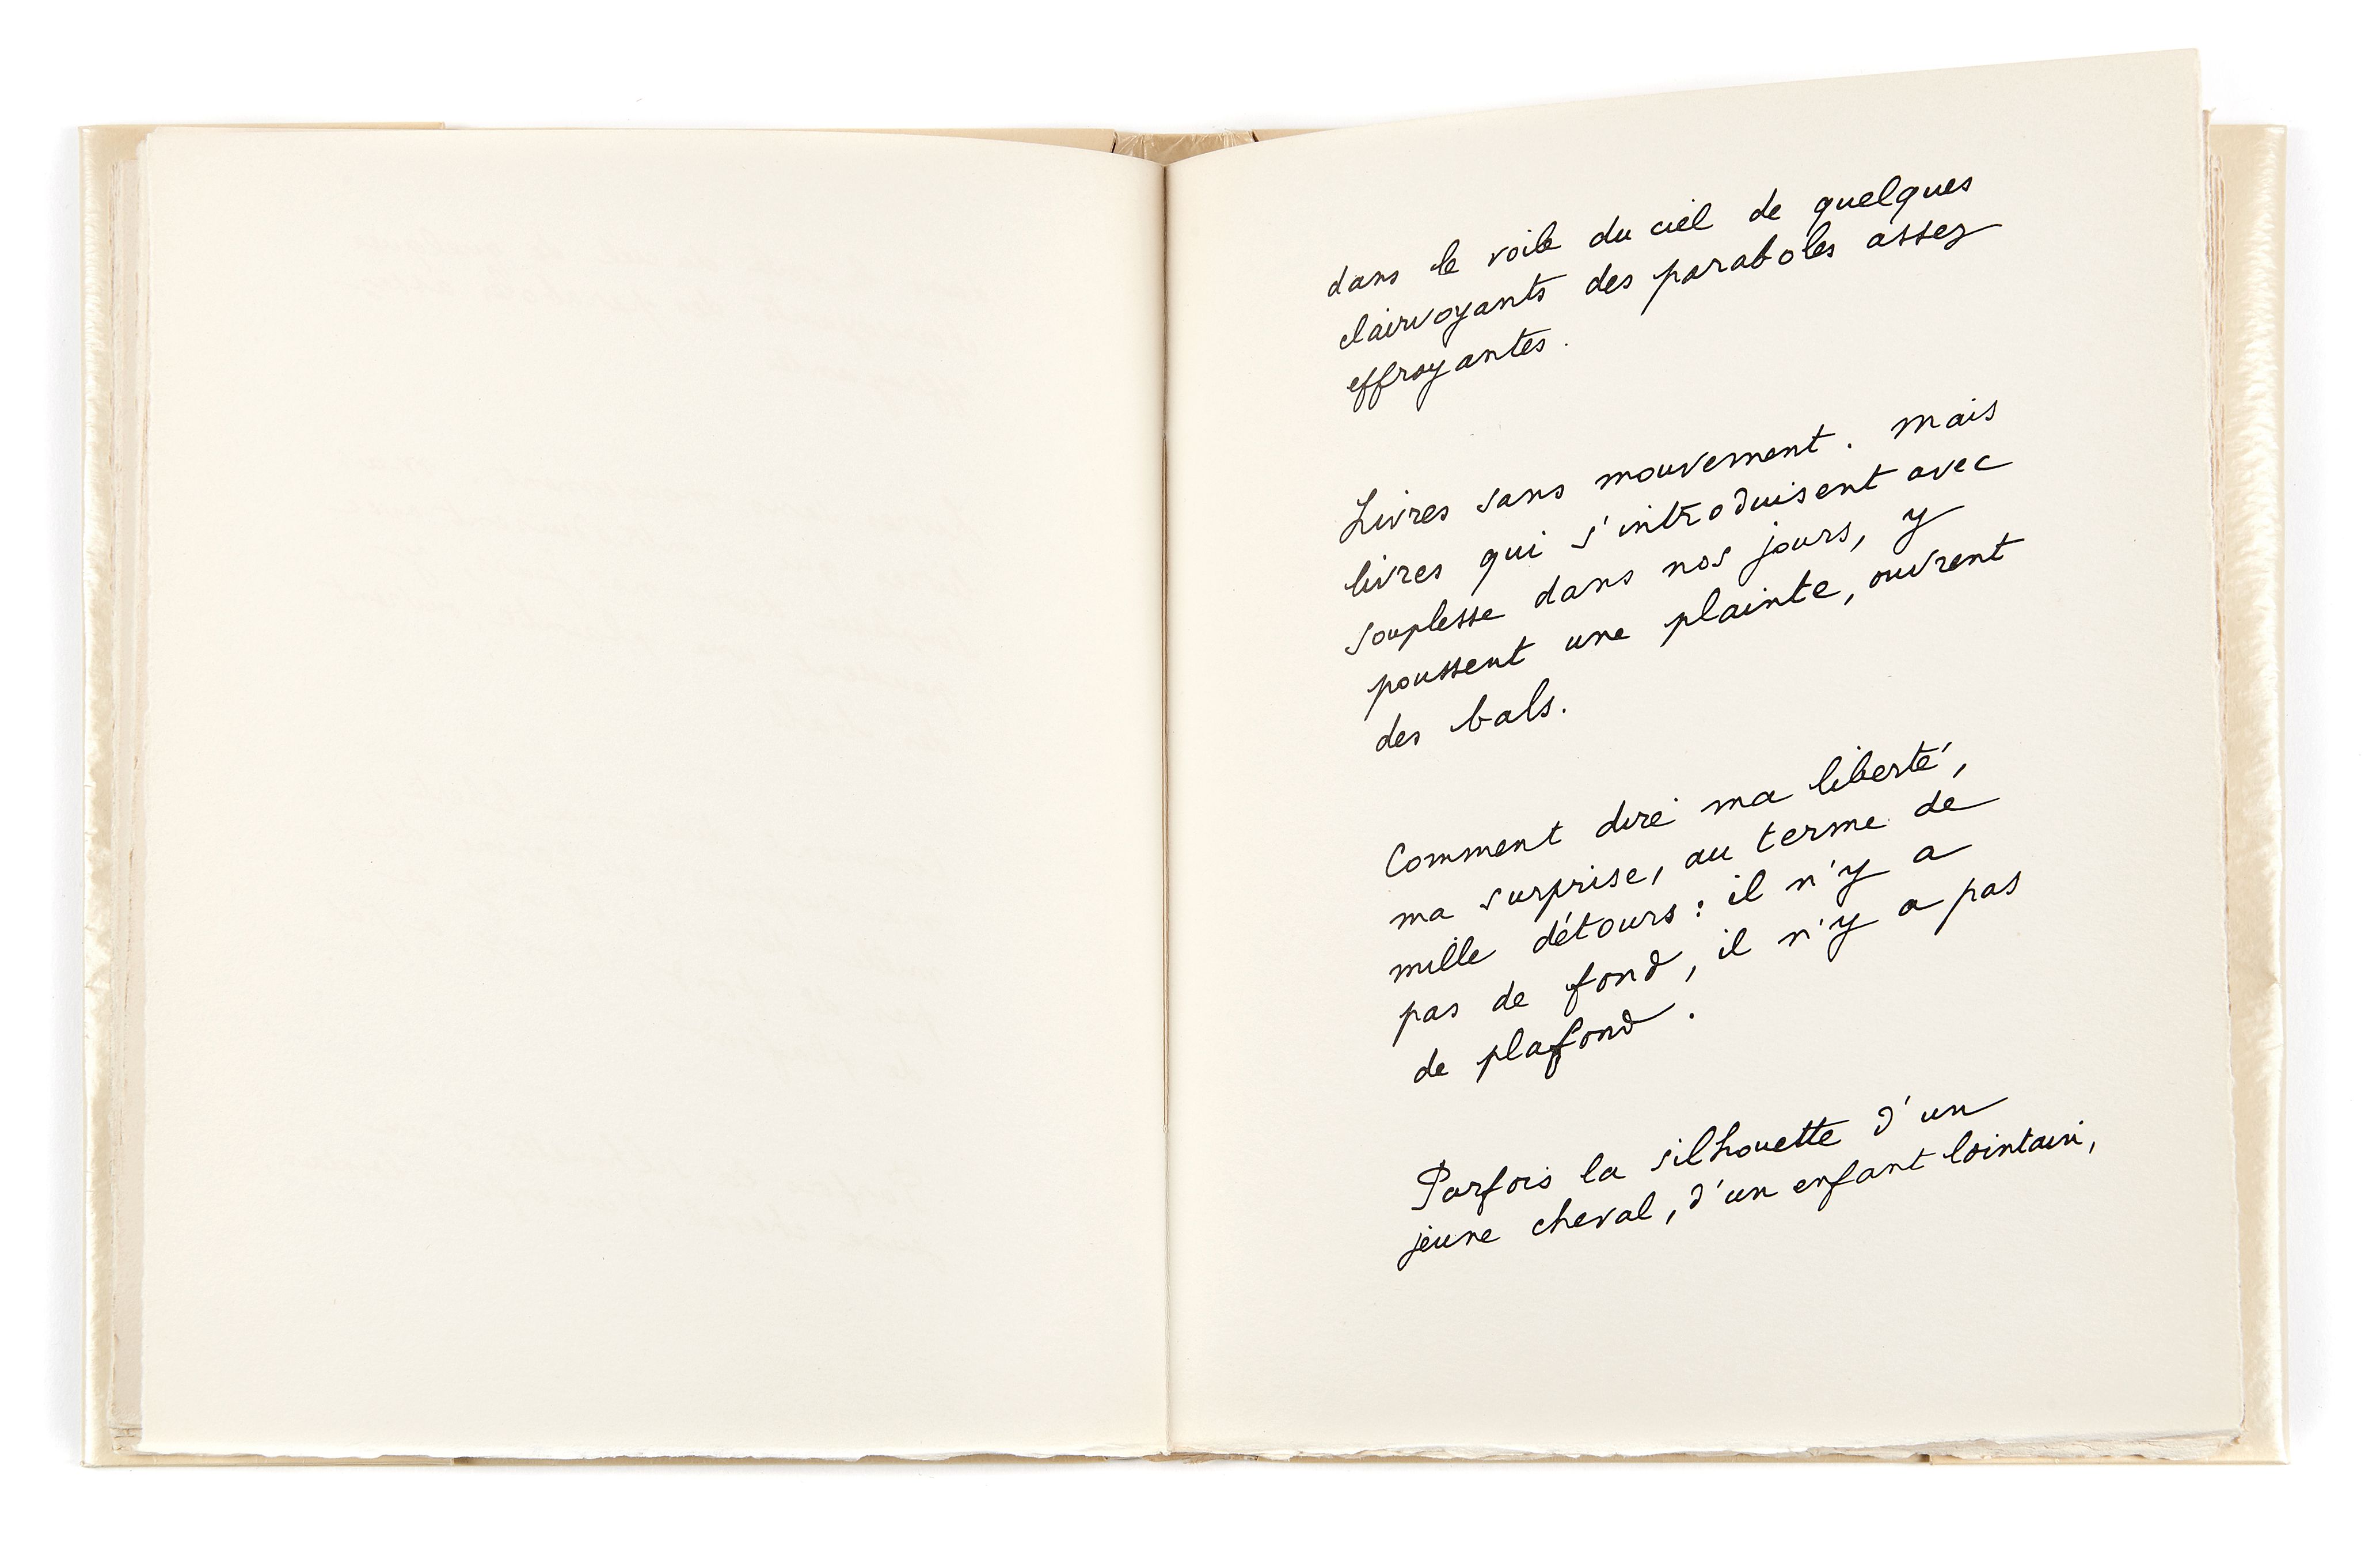 dans le voile du ciel de quelques
clairvoyants des paraboles assez
effroyantes.
Livres sans mouvement. Mais
livres qui s'introduisent avec
souplesse dans nos jours, y
poussent une plainte, ouvrent
des bals.
Comment dire ma liberté,
ma surprise, au terme de
mille détours : il n'y a
pas de fond, il n'y a pas
de plafond.
Parfois la silhouette d'un
jeune cheval, d'un enfant lointain,